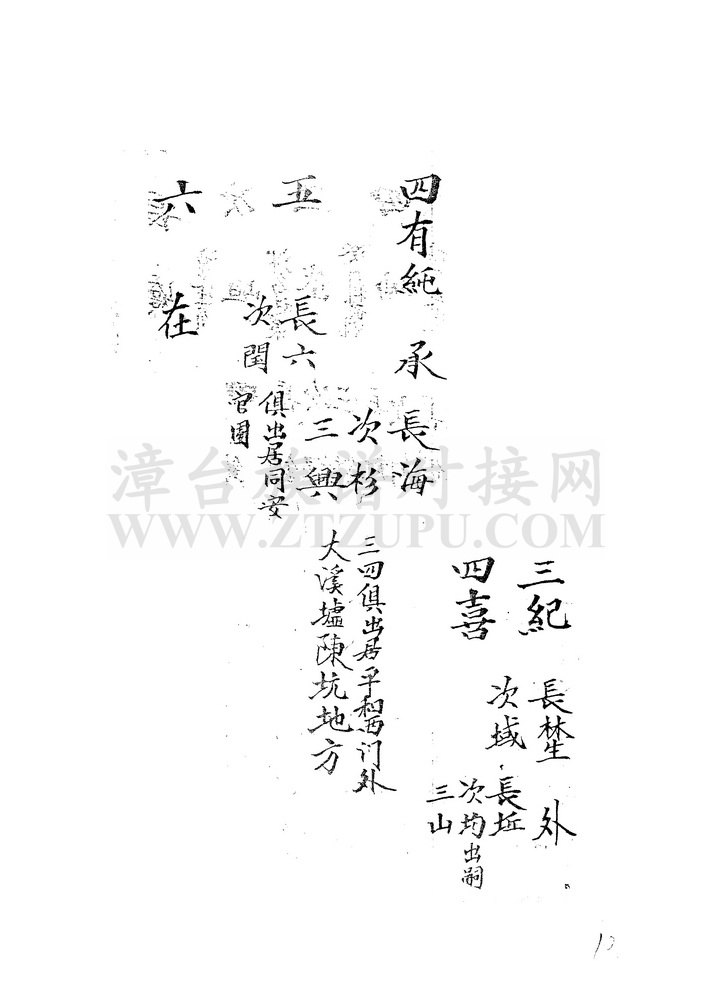 三紀
長𣕚 外
次域
長坵
次均出嗣
三山
四喜
四有純 承
長海
次杉
三興
三四俱出居平和西门外
大溪墟陳坑地方
五
長六
次閏
俱出居同安
官園
六 在
漳台族谱对接网
WWW.ZTZUPU.COM
12